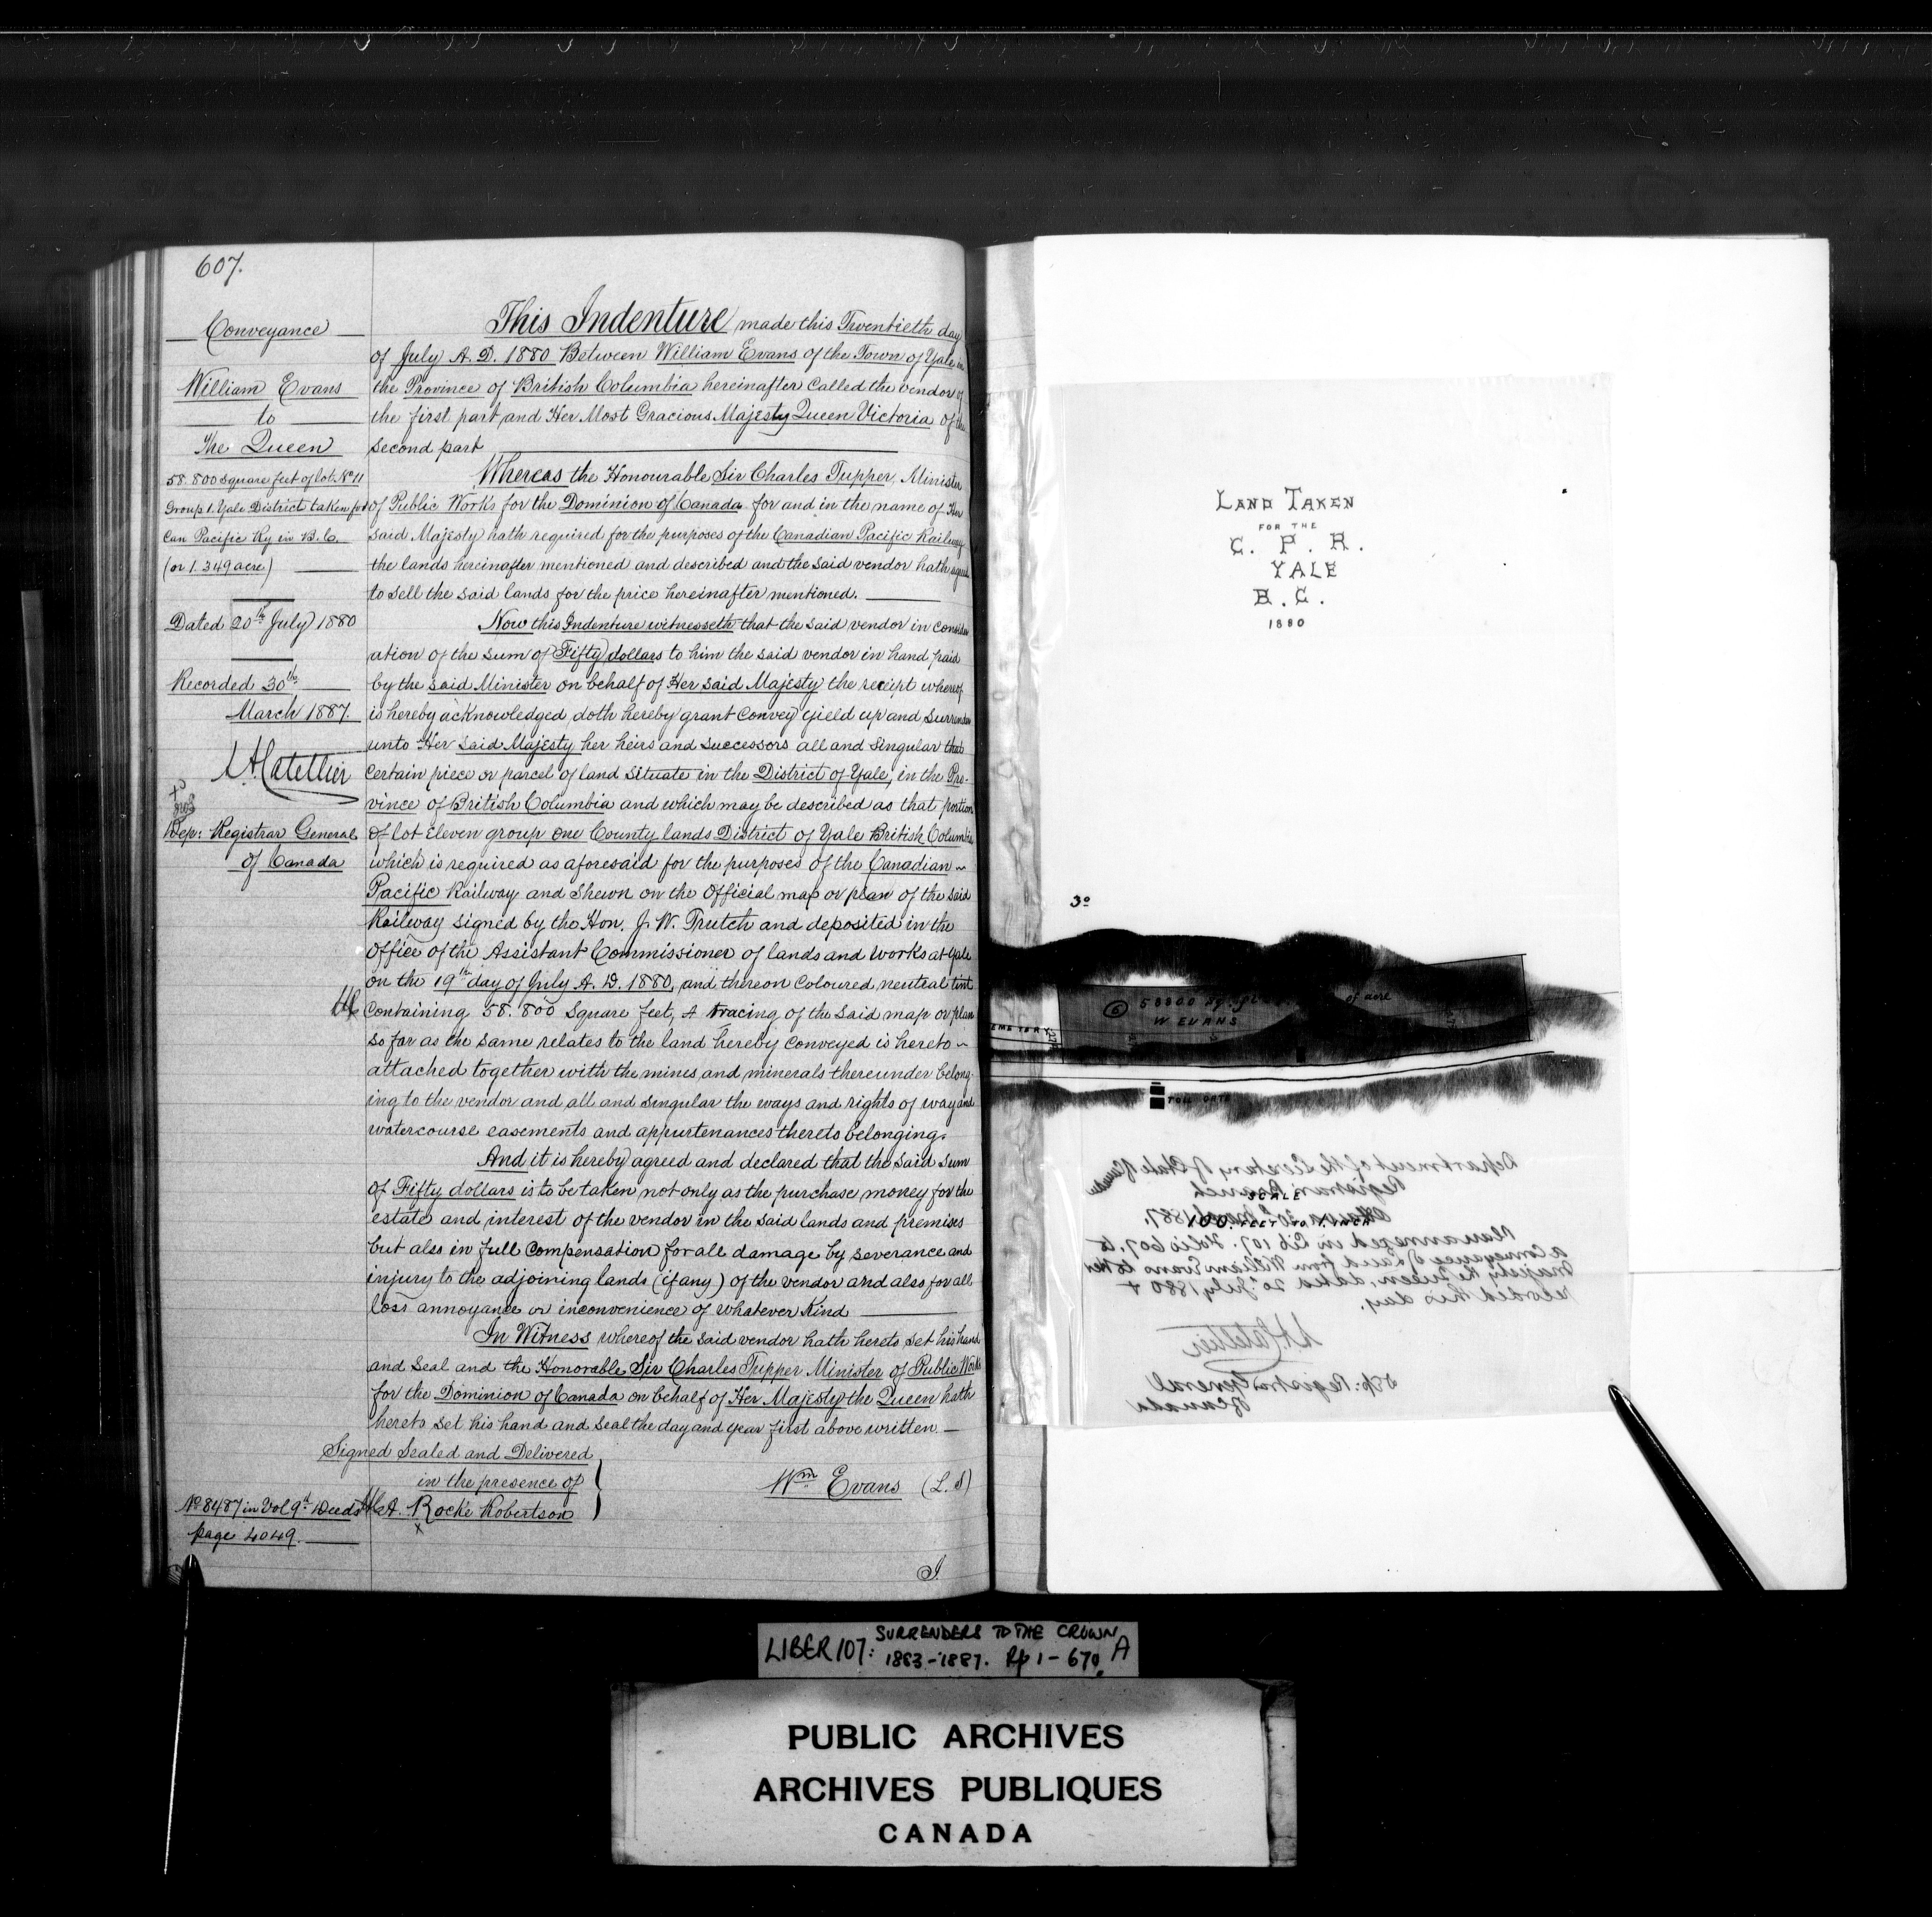 607.
Conveyance
William Evans
to
The Queen
58.800 Square feet of lot No 11
Group 1. Yale District taken for
Can Pacific Ry in B.C.
(or 1.349 acre)
Dated 20th July 1880
Recorded 30th
March 1887.
Dep: Registrar General
of Canada
No 8487 in Vol 9th Deeds
page 4049.
This Indenture made this Twentieth day
of July A.D. 1880 Between William Evans of the Town of Yale in
the Province of British Columbia hereinafter called the vendor of
the first part and Her Most Gracious Majesty Queen Victoria of the
second part
Whereas the Honourable Sir Charles Tupper, Minister
of Public Works for the Dominion of Canada for and in the name of Her
said Majesty hath required for the purposes of the Canadian Pacific Railway
the lands hereinafter mentioned and described and the said vendor hath agreed
to sell the said lands for the price hereinafter mentioned.
Now this Indenture witnesseth that the said vendor in consider
ation of the sum of Fifty dollars to him the said vendor in hand paid
by the said Minister on behalf of Her said Majesty the receipt whereof
is hereby acknowledged, doth hereby grant convey yield up and surrender
unto Her said Majesty her heirs and successors all and singular that
certain piece or parcel of land situate in the District of Yale, in the Pro-
vince of British Columbia and which may be described as that portion
of lot eleven group one County lands District of Yale British Columbia,
which is required as aforesaid for the purposes of the Canadian ~
Pacific Railway and shewn on the Official map or plan of the said
Railway signed by the Hon. J. W. Trutch and deposited in the
Office of the Assistant Commissioner of lands and works at Yale
on the 19th day of July A.D. 1880, and thereon coloured neutral tint
containing 58.800 square feet, A tracing of the said map or plan
so far as the same relates to the land hereby conveyed is hereto ~
attached together with the mines and minerals thereunder belong-
ing to the vendor and all and singular the ways and rights of way and
watercourse easements and appurtenances thereto belonging.
And it is hereby agreed and declared that the said sum
of Fifty dollars is to be taken not only as the purchase money for the
estate and interest of the vendor in the said lands and premises
but also in full compensation for all damage by severance and
injury to the adjoining lands (if any) of the vendor and also for all
loss annoyance or inconvenience of whatever kind
In Witness whereof the said vendor hath hereto set his hand
and seal and the Honorable Sir Charles Tupper Minister of Public Works
for the Dominion of Canada on behalf of Her Majesty the Queen hath
hereto set his hand and seal the day and year first above written.
Signed Sealed and Delivered
in the presence of
A. Rocke Robertson
Wm Evans (L.S)
I.
LAND TAKEN
FOR THE
C. P. R.
YALE
B.C.
1880
30
6 58800 of acre
W EVANS
TOLL GATE
SCALE
100 FEET TO 1 INCH
Department of the Secretary of State Canada
Registrar's Branch
Ottawa 30th March 1887.
Plan annexed in Lib 107. Folio 607 to
a Conveyance of Land from William Evans to Her
Majesty the Queen, dated 20th July 1880 &
recorded this day.
Dep: Registrar General
of Canada
LIBER 107: SURRENDERS TO THE CROWN A
1883-1887. Pp 1-670
PUBLIC ARCHIVES
ARCHIVES PUBLIQUES
CANADA